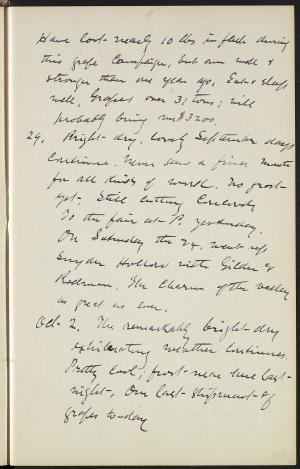 Have lost nearly 10 lbs in flesh during
this grape Campaign, but am well &
stronger than one year ago, Eat & sleep
well, Grapes over 31 tons; will
probably bring me $3200.
29. Bright, dry, lovely September days
Continue. Never saw a finer month
for all kinds of work. No frost
yet. Still cutting Concords
To the fair at P. yesterday.
On Saturday the 24, went up
Snyder Hollow with Gilder &
Rodman. The charm of the valley
as great as ever.
Oct 2. The remarkably bright dry
exhilarating weather Continues.
Pretty Cool; frost near here last
night. Our last shipment of
grapes to-day